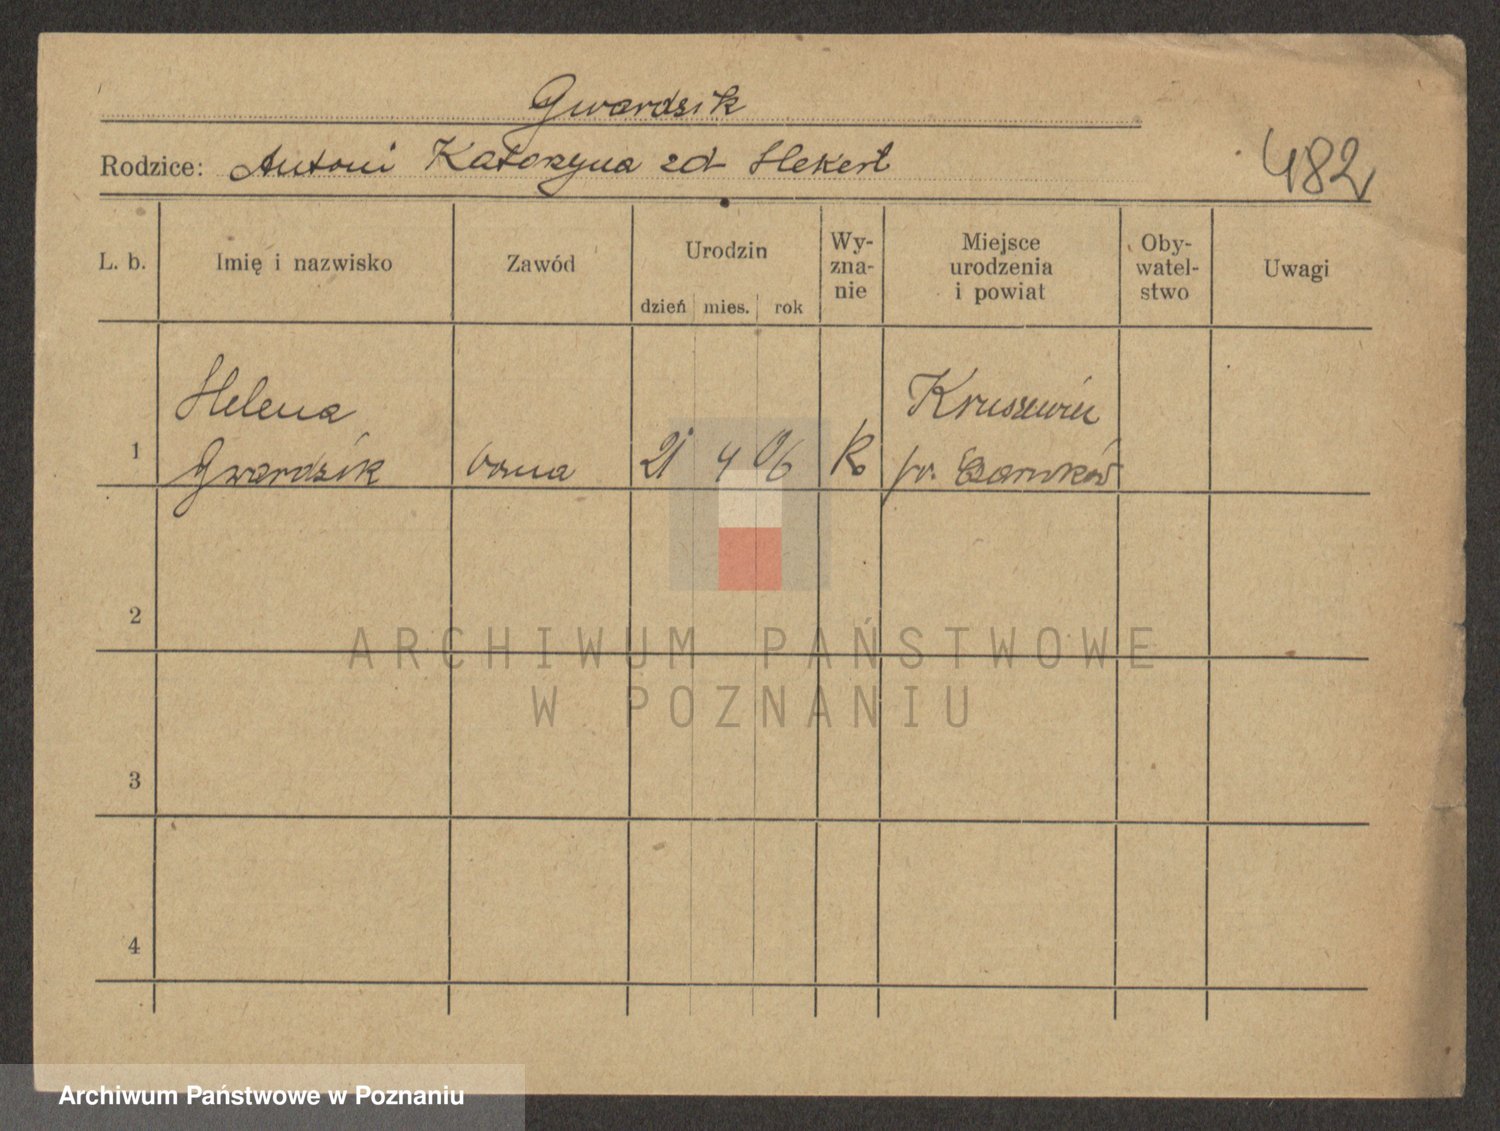 Gwardzik
Rodzice: Antoni Katarzyna zd Hekert
482
L. b. Imię i nazwisko Zawód Urodzin dzień mies. rok Wy-zna-nie Miejsce urodzenia i powiat Oby-watel-stwo Uwagi
Helena Kruszewiec
1 Gwardzik 21 4 06 R pw. Czarnków
2
ARCHIWUM PAŃSTWOWE
W POZNANIU
3
4
Archiwum Państwowe w Poznaniu